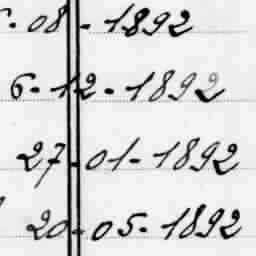 -08-1892
6-12-1892
27-01-1892
20-05-1892